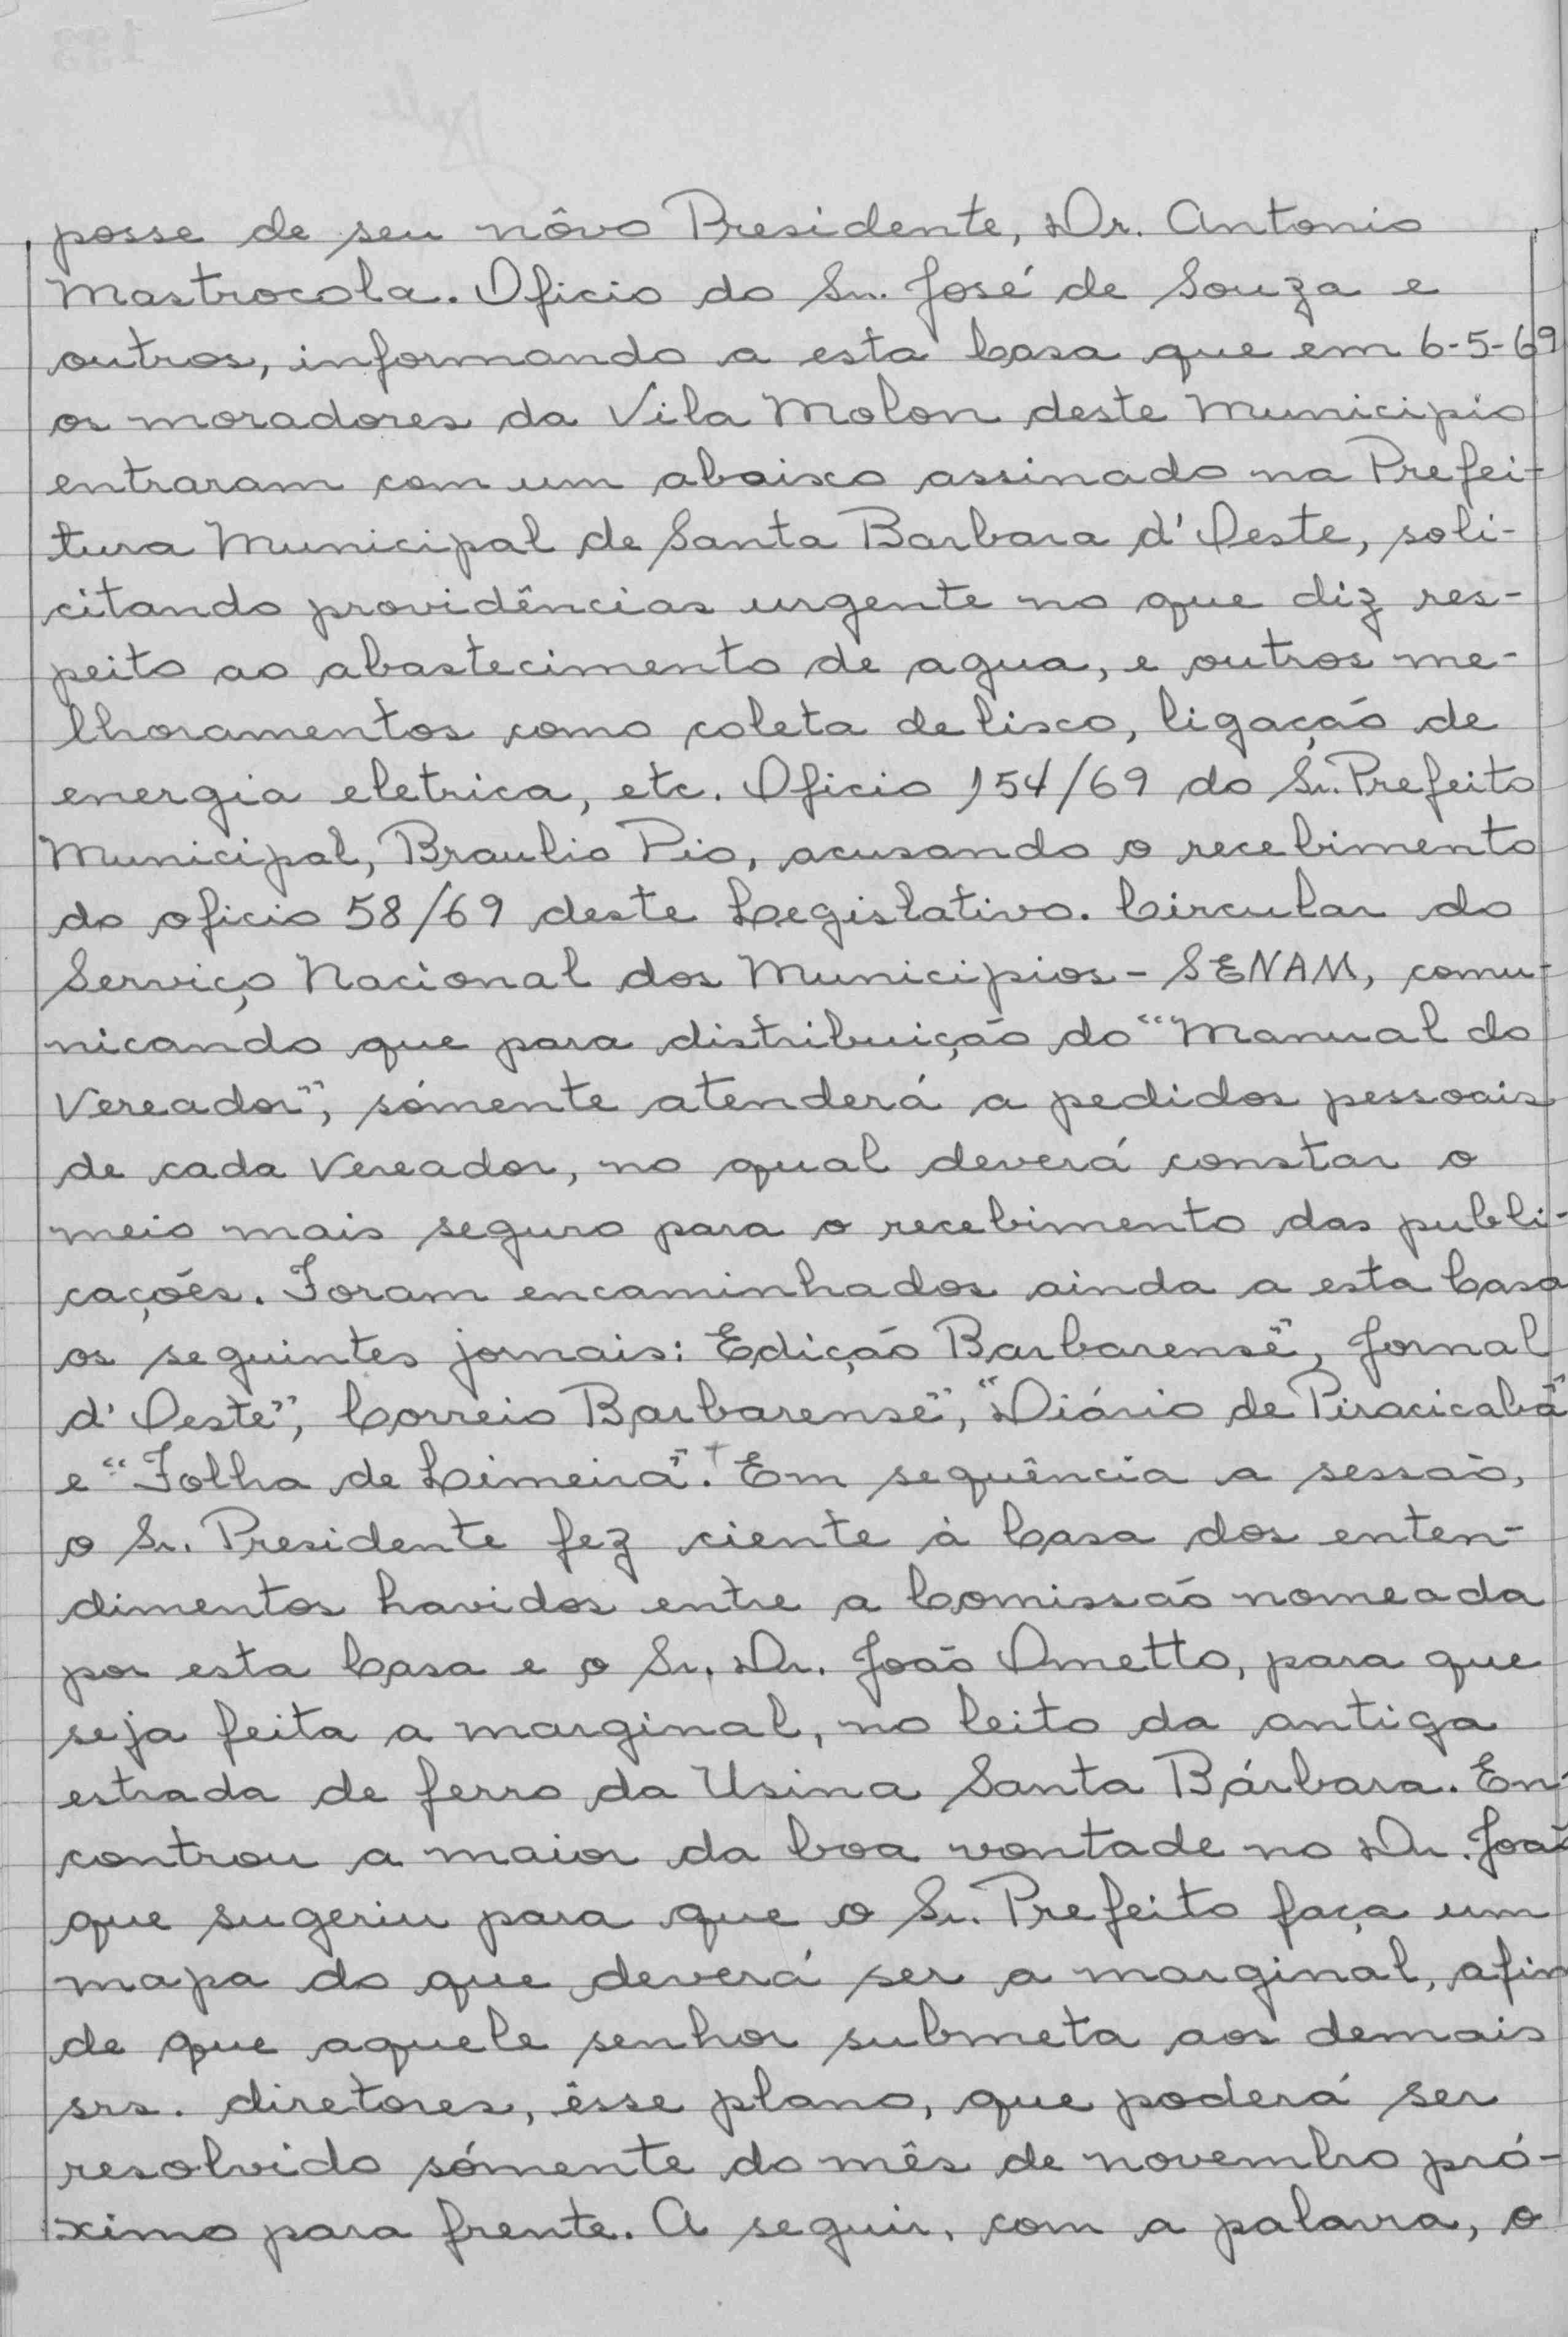 posse de seu nôvo Presidente, Dr. Antonio
Mastrocola. Oficio do Sr. José de Souza e
outros, informando a esta Casa que em 6-5-69
os moradores da Vila Molon deste Municipio
entraram com um abaixo assinado na Prefei-
tura Municipal de Santa Barbara d'Oeste, soli-
citando providências urgente no que diz res-
peito ao abastecimento de agua, e outros me-
lhoramentos como coleta de lixo, ligação de
energia eletrica, etc. Oficio 154/69 do Sr. Prefeito
Municipal, Braulio Pio, acusando o recebimento
do oficio 58/69 deste Legislativo. Circular do
Serviço Nacional dos Municipios - SENAM, comu-
nicando que para distribuição do "Manual do
Vereador", sómente atenderá a pedidos pessoais
de cada Vereador, no qual deverá constar o
meio mais seguro para o recebimento das publi-
cações. Foram encaminhados ainda a esta Casa
os seguintes jornais: Edição Barbarense", Jornal
d'Oeste", Correio Barbarense", "Diário de Piracicaba"
e "Folha de Limeira". Em sequência a sessão,
o Sr. Presidente fez ciente à Casa dos enten-
dimentos havidos entre a Comissão nomeada
por esta Casa e o Sr. Dr. João Ometto, para que
seja feita a marginal, no leito da antiga
estrada de ferro da Usina Santa Bárbara. En-
controu a maior da boa vontade no Dr. João
que sugeriu para que o Sr. Prefeito faça um
mapa do que deverá ser a marginal, afim
de que aquele senhor submeta aos demais
srs. diretores, êsse plano, que poderá ser
resolvido sómente do mês de novembro pró-
ximo para frente. A seguir, com a palavra, o